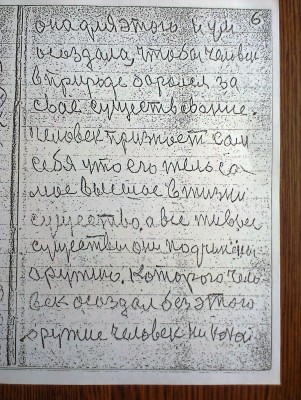 6
она для этого и ум
осоздала, чтобы человек
в природе боролся за
свое существование.
Человек признает сам
себя что его тело са
мое высшее в жизни
существо, а все живые
существа они подчинены
оружию. которого чело
век осоздал без этого
оружие человек никакой